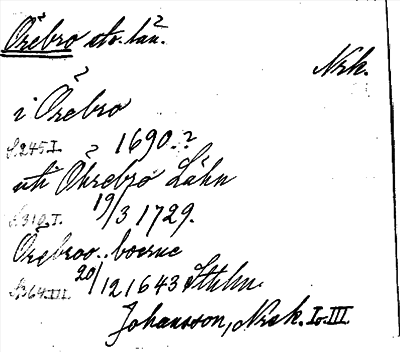 Örebro sto. län.
Nrk.
i Örebro
S. 245 I. 1690.?
uti Öhrebro Lähn
S. 319 I. 19/3 1729.
Örebroo..boerne
S. 364 III. 20/12 1643 Sthlm.
Johansson, Nrk. I o. III